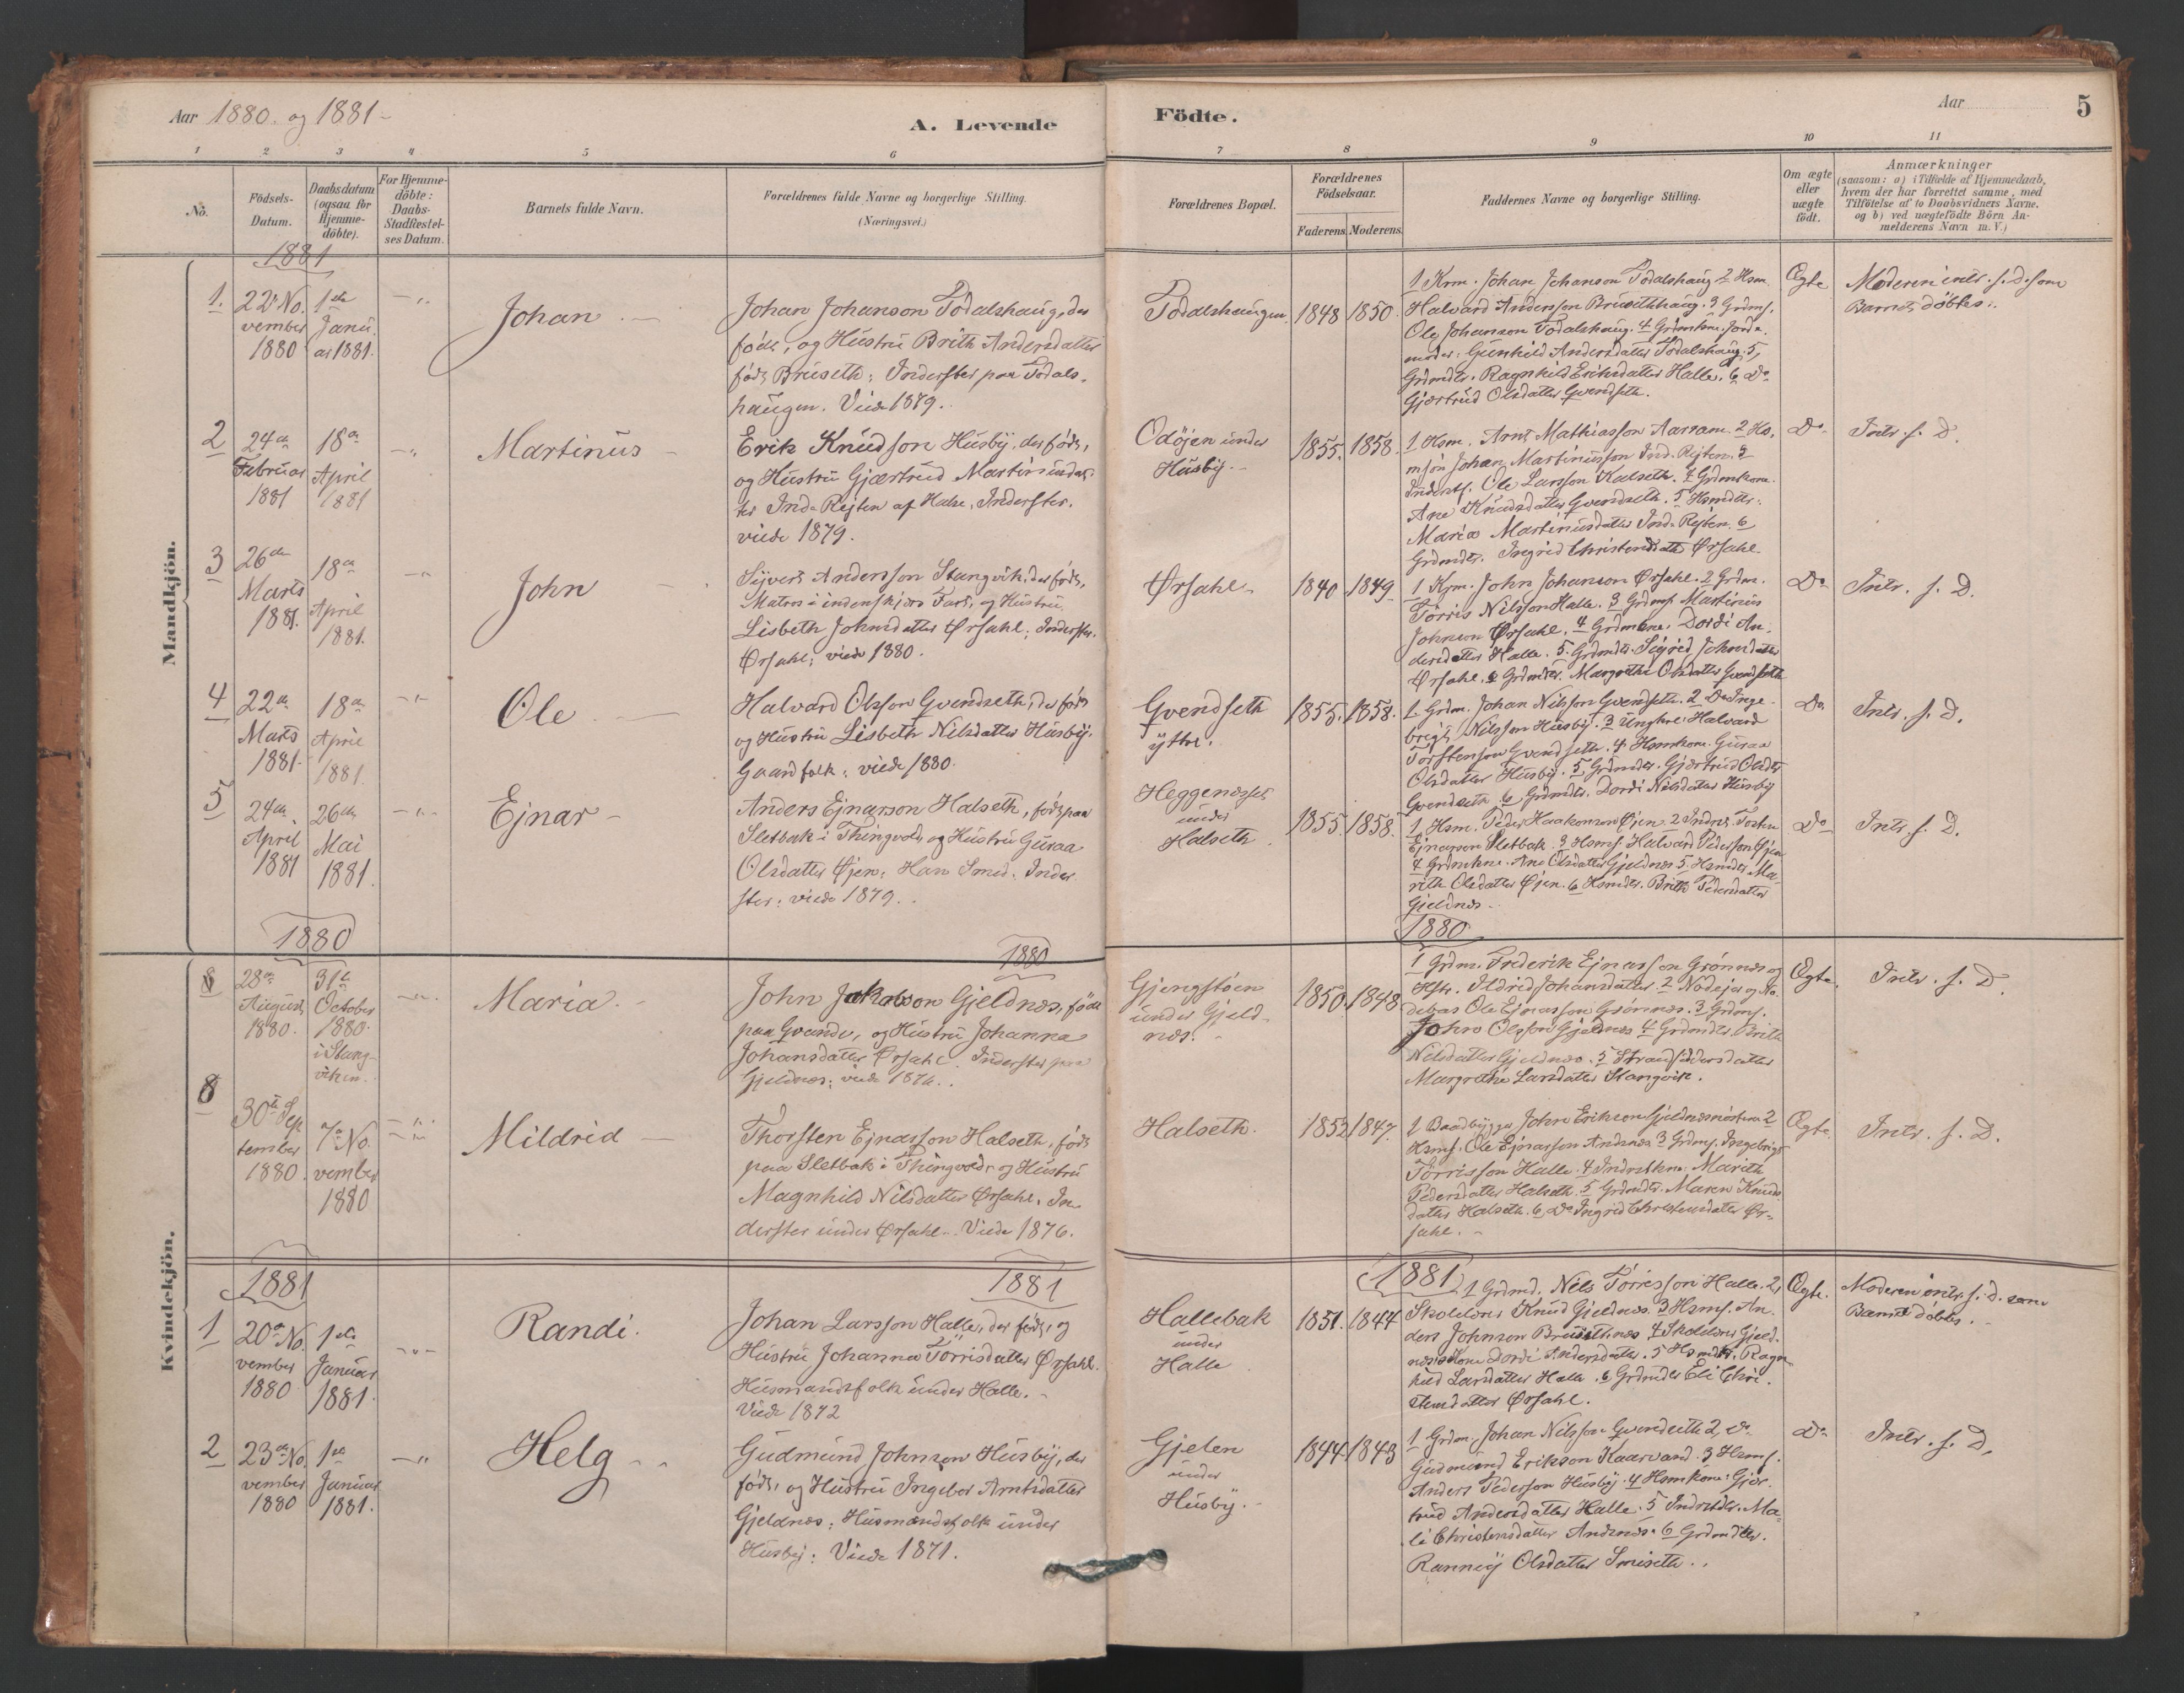 Aar 1880. og 1881 -
A. Levende
Födte.
Aar
5
1 2 3 4 5 6 7 8 9 10 11
No.
Födsels-
Datum.
Daabsdatum
(ogsaa for
Hjemme-
döbte).
For Hjemme-
döbte:
Daabs-
Stadfæstel-
ses Datum.
Barnets fulde Navn.
Forældrenes fulde Navne og borgerlige Stilling.
(Næringsvei.)
Forældrenes Bopæl.
Forældrenes
Födselsaar.
Faderens. Moderens.
Faddernes Navne og borgerlige Stilling.
Om ægte
eller
uægte
födt.
Anmærkninger
(saasom: a) i Tilfælde af Hjemmedaab,
hvem der har forrettet samme, med
Tilföielse af to Daabsvidners Navne,
og b) ved uægtefödte Börn An-
melderens Navn m.V.)
Mandkjön.
1881
1.
22 No
vember
1880
1ste
Janu
ar 1881.
Johan
Johan Johanson Todalshaug, der
född, og Hustru Brith Andersdatter
föds Brüseth; Inderster paa Todals-
haugen. Viede 1879.
Todalshaugen
1848 1850
1 Krm. Johan Johanson Todalshaug 2 Hsm.
Halvard Andersson Brüsethhaug. 3 Grdmf.
Ole Johanson Todalshaug. 4 Grdmkone. Jorde-
moder: Gunhild Andersdatter Todalshaug. 5,
Grdmdtr. Ragnhild Eriksdatter Halle. 6 Do
Gjærtrud Olsdatter Qvendseth.
Ægte
Moderen intr. s. d. som
Barnet döbtes.
2
24de
Februar
1881
18de
April
1881
Martinus
Erik Knudsson Husby, der föds,
og Hustru Gjærtrud Martinusdat-
ter Ind-Rejten af Halse, Inderster.
viede 1879.
Odöjen under
Husby.
1855. 1858.
1 Hsm. Arnt Mathiasson Aaram. 2 Hs,
msön Johan Martinusson Ind. Rejten. 3
Inderstf. Ole Larsson Kalseth. 4 Grdmkone.
Ane Knudsdatter Qvendseth. 5 Hsmdtr.
Maria Martinusdatter Ind-Rejten. 6
Grdmdtr. Ingrid Christensdatt Ørsahl.
Do
Intr. s. D.
3
26de
Marts
1881.
18de
April
1881.
John
Sjvert Andersson Stangvik, der föds,
Matros i indenskjærs Fart, og Hustru
Lisbeth Johnsdatter Ørsahl; Inderster.
Ørsahl; viede 1880.
Ørsahl
1840 1849
1 Krm. John Johanson Ørsahl. 2 Grdm.
Torris Nilsson Halle. 3 Grdmf. Martinus
Johnson Ørsahl. 4 Grdmkne. Dordi An-
dersdatter Halle. 5. Grdmdtr. Sigrid Johnsdatter
Ørsahl. 6 Grdmdtr. Margrethe Olsdatter Qvendseth
Do
Intr. s. D.
4
22de
Marts
1881.
18de
April
1881.
Ole
Halvard Olsson Qvendseth, der föds
og Hustru Lisbeth Nilsdatter Husby.
Gaardfolk; viede 1880.
Qvendseth
yttre.
1855. 1858.
1 Grdm. Johan Nilsson Qvendseth. 2 Do Inge-
brigt Nilsson Husby. 3 Ungkrl. Halvard
Torstenson Qvendseth. 4 Hsmkone. Guraa
Olsdatter Husby. 5 Grdmdtr. Gjærtrud Olsdtr
Qvendseth. 6 Grdmdtr. Dordi Nilsdatter Husby
Do
Intr. s. D.
5
24de
April
1881
26de
Mai
1881.
Ejnar
Anders Ejnarson Halseth, föds paa
Sletbak i Thingvold og Hustru Guraa
Olsdatter Øjen; Han Smed. Inder-
ster; viede 1879.
Heggenæsset
under
Halseth
1855. 1858.
1 Hsm. Peder Haakonson Øjen 2 Indrst. Tosten
Ejnarson Sletbak. 3 Hsmf. Halvard Pederson Øjen
4 Grdmkne. Ane Olsdatter Gjeldnæs 5 Hsmdtr. Ma-
rith Olsdatter Øjen. 6 Hsmdtr. Brith Pedersdatter
Gjeldnæs.
Do
Intr. s. D.
Kvindekjön.
1880
1880
1880
8
28de
August
1880.
31te
October
1880.
i Stang-
viken.
Maria.
John Jakobson Gjeldnæs, född
paa Qvande, og Hustru Johanna
Johansdatter Ørsahl. Inderster paa
Gjeldnæs; viede 1876.
Gjengstøen
under Gjeld-
næs.
1850. 1848
1 Grdm. Frederik Ejnarson Grønnæs og
Hstr. Ildrid Johansdatter. 2
Ole Ejnarsson Grønnæs. 3 Grdmf.
John Olsson Gjeldnæs 4 Grdmdtr. Brith
Nilsdatter Gjeldnæs. 5
Margrethe Larsdatter Stangvik.
Ægte.
Intr. s. D.
8
30te Sep
tember
1880.
7de No
vember
1880
Mildrid
Thorsten Ejnarsson Halseth, föds
paa Sletbak i Thingvold og Hustru
Magnhild Nilsdatter Ørsahl. In-
derster under Ørsahl. Viede 1876.
Halseth.
1852 1847.
1 Baadbygger John Erikson Gjeldnæsmöstua 2
Hsmf. Ole Ejnarsson Andsnæs 3 Grdmf. Ingebrigt
Torrisson Halle. 4 Indrstkne. Marith
Pedersdatter Halseth. 5 Grdmdtr. Maren Knuds-
datter Halseth. 6 Do Ingrid Christensdatter Ør-
sahl.
Ægte.
Intr. s. D.
1881
1881
1881
1
20de No
vember
1880
1ste
Januar
1881.
Randi.
Johan Larsson Halle, der föds, og
Hustru Johanna Torrisdatter Ørsahl.
Husmandsfolk under Halle.
Viede 1872
Hallebak
under
Halle
1851. 1844
1 Grdmd. Nils Torrisson Halle. 2,
Skolelærer Knud Gjeldnæs. 3 Hsmf. An-
ders Johnson Brusethnæs 4 Skolelærer Gjeld-
næs's Kone Dordi Andersdatter. 5 Hsmdtr. Ragn-
hild Larsdatter Halle. 6 Grdmdtr Eli Chri-
stensdatter Ørsahl.
Ægte.
Moderen intr. s. d. som
Barnet döbts.
2
23de No
vember
1880
1ste
Januar
1881.
Helg
Gudmund Johnson Husby, der
föds, og Hustru Ingebor Arntsdatter
Gjeldnæs; Husmandsfolk under
Husby; Viede 1871.
Gjelen
under
Husby.
1844 1843
1 Grdm. Johan Nilsson Qvendseth 2, Do
Gudmund Erikson Kaarvand. 3 Hsmf.
Anders Pederson Husby. 4 Hsmkone: Gjær-
trud Andersdatter Halle. 5 Indrstdtr. Ma-
li Christensdatter Andsnæs. 6 Grdmdtr.
Rannej Olsdatter Smiseth.
Do
Intr. s. D.